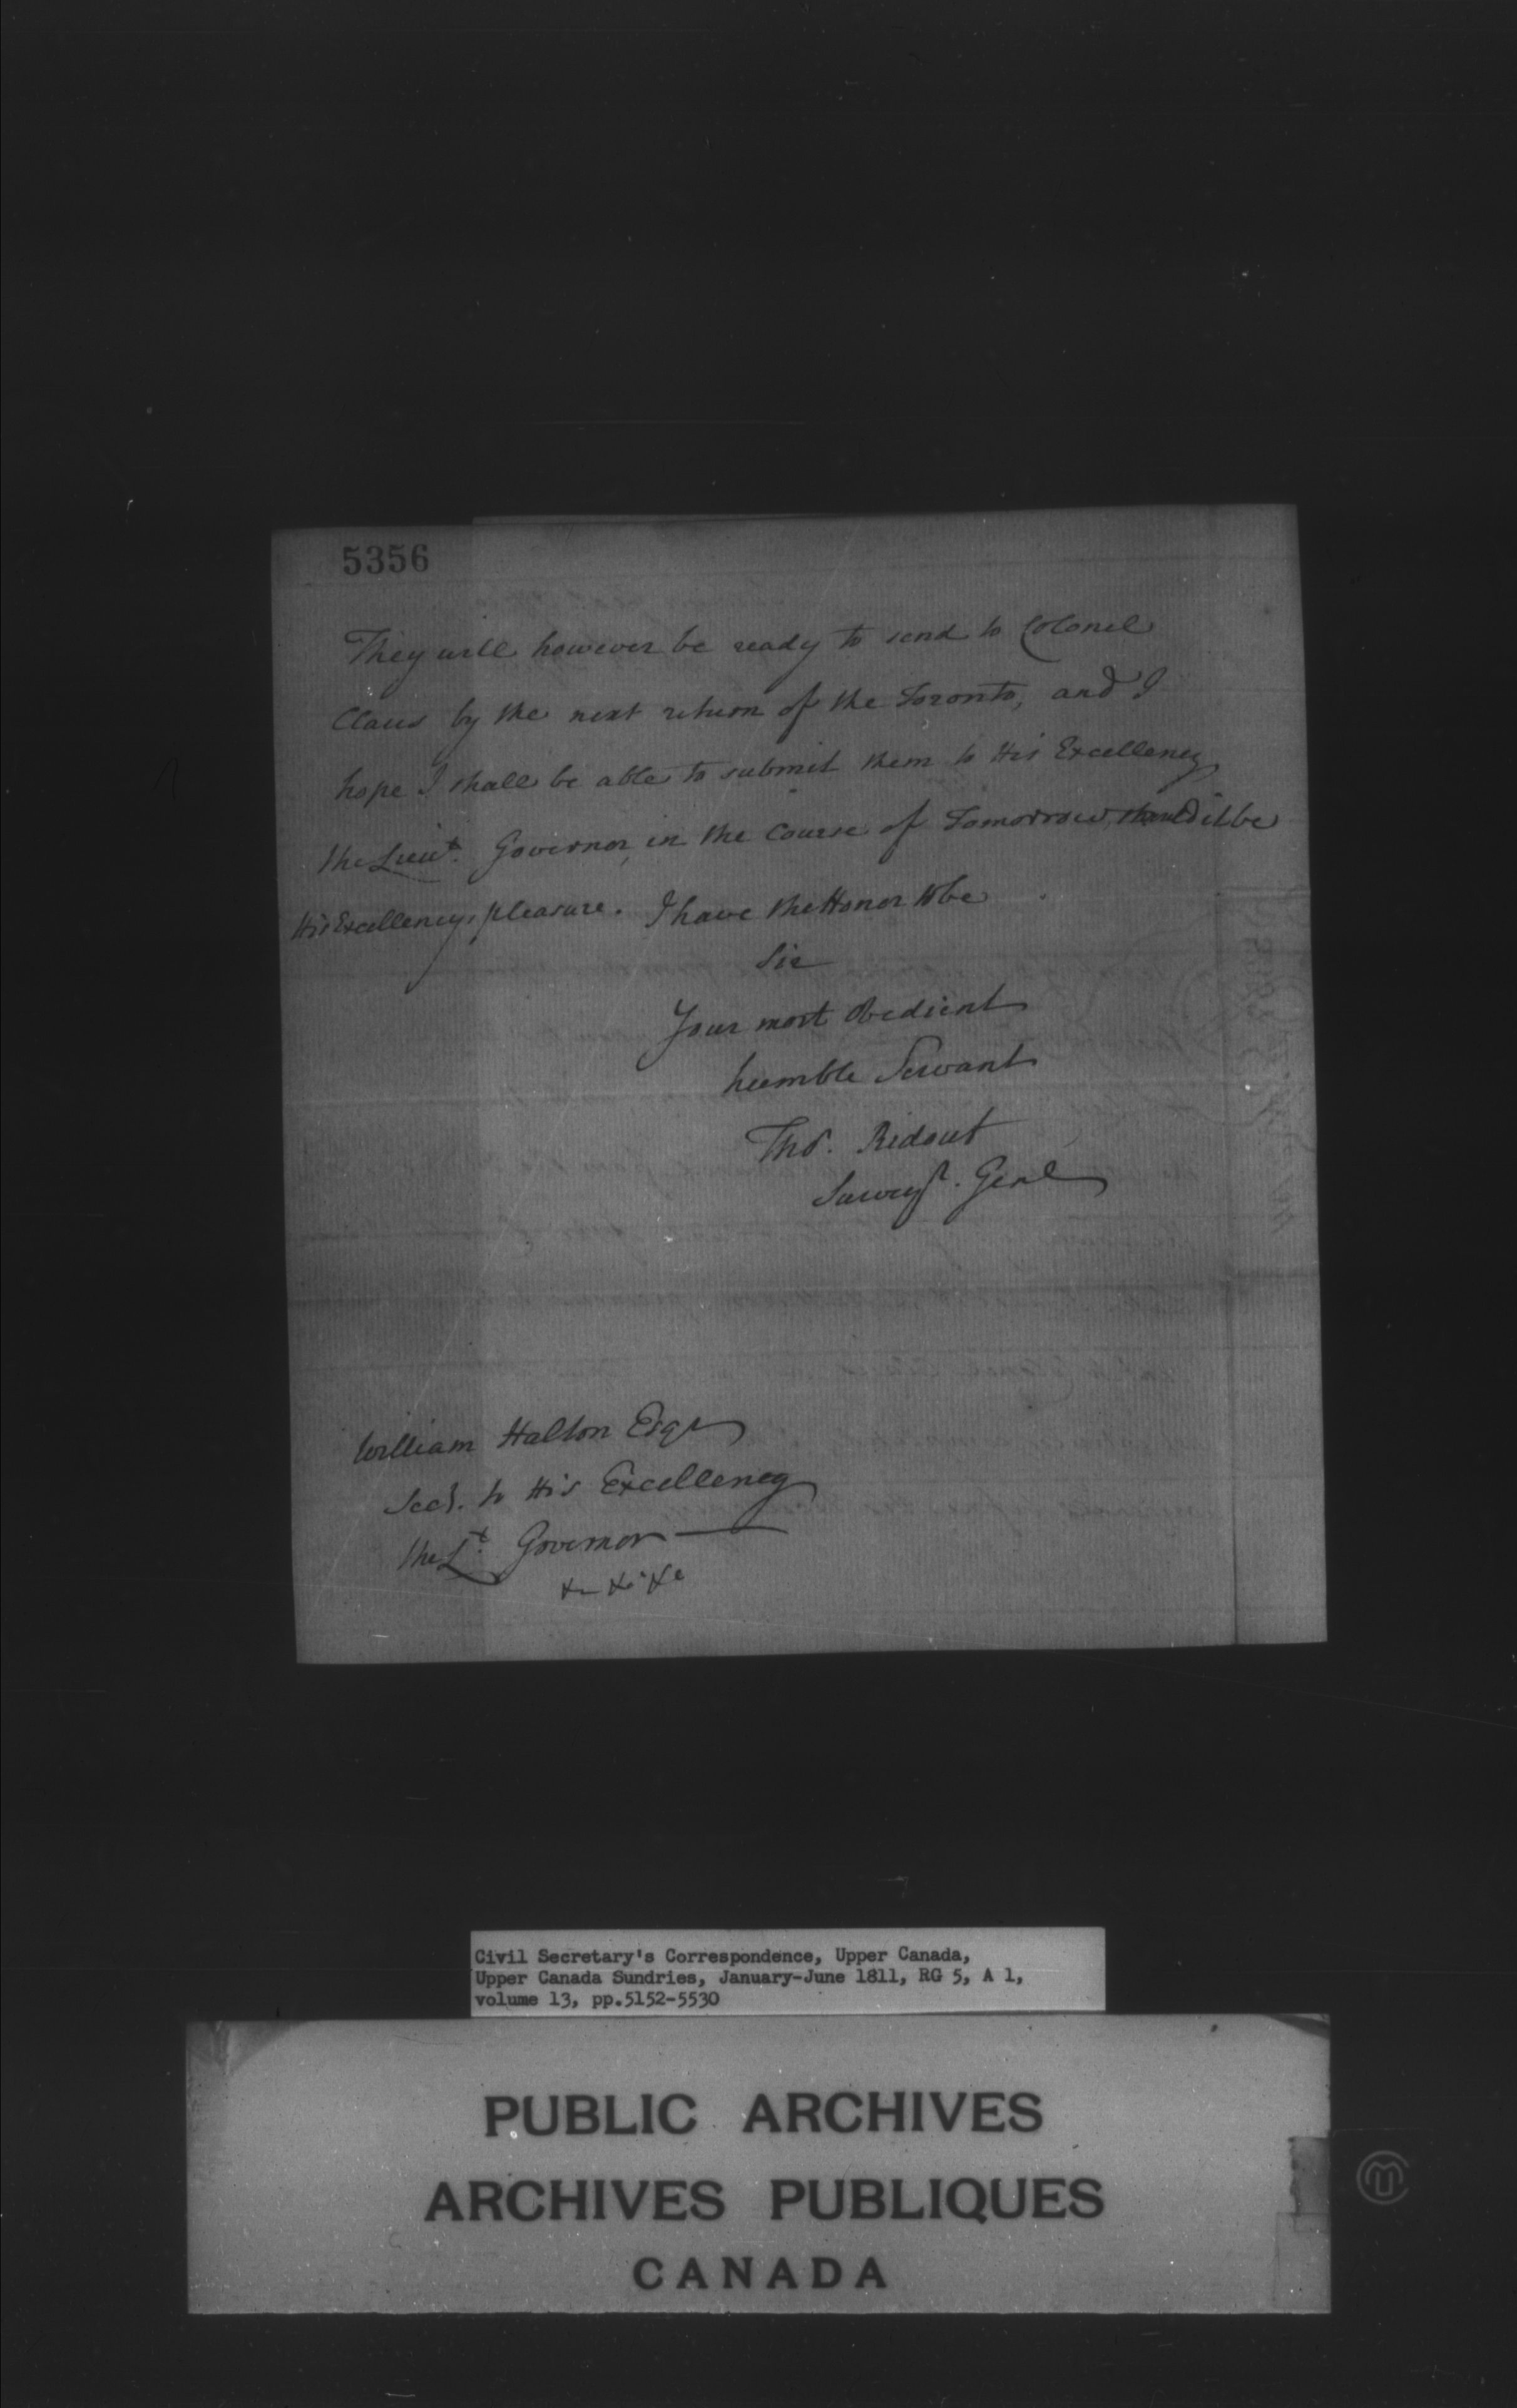 5356
They will however be ready to send to Colonel
Claus by the next return of the Toronto, and I
hope I shall be able to submit them to His Excellency
the Lieut. Governor, in the Course of Tomorrow, should it be
His Excellencys pleasure. I have the Honor to be
Sir
Your most Obedient
humble Servant
Thos. Ridout
Surveyr. Genl
William Halton Esqr
Secy. to His Excellency
the Lt. Governor —
&c &c &c
Civil Secretary's Correspondence, Upper Canada,
Upper Canada Sundries, January-June 1811, RG 5, A 1,
volume 13, pp.5152-5530
PUBLIC ARCHIVES
ARCHIVES PUBLIQUES
CANADA